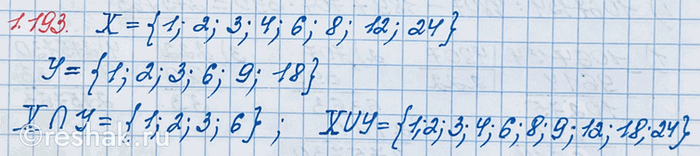 1.193. X = {1; 2; 3; 4; 6; 8; 12; 24}
Y = {1; 2; 3; 6; 9; 18}
X∩Y = {1; 2; 3; 6}; X∪Y = {1;2;3;4;6;8;9;12;18;24}
reshak.ru